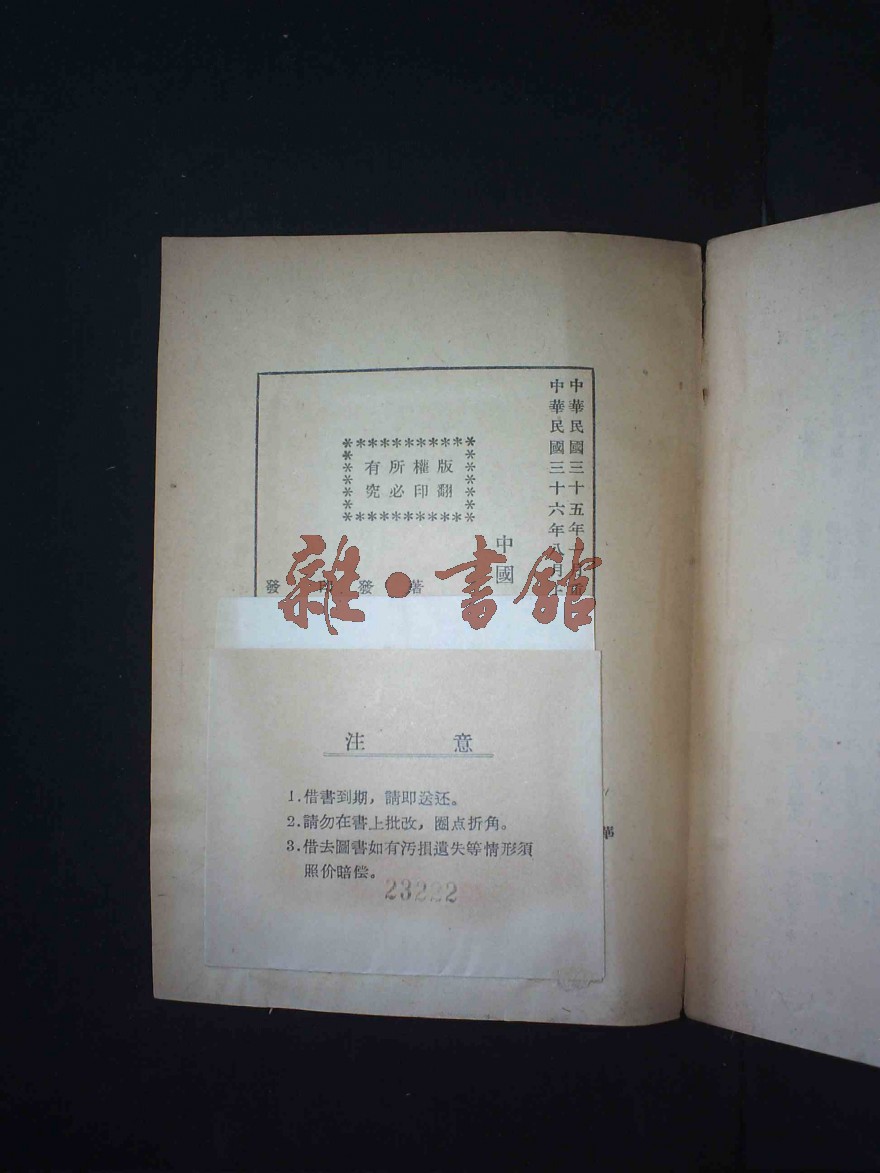 中華民國三十五年十
中華民國三十六年八月
中國
版權所有
翻印必究
著
發
印
發
雜·書館
注意
1.借書到期，請即送还。
2.請勿在書上批改，圈点折角。
3.借去圖書如有污損遺失等情形須
照价賠偿。
23222